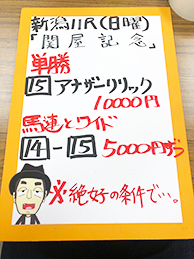 新潟11R(日曜)
「関屋記念」
単勝
15 アナザーリリック
10000円
馬連とワイド
14-15 5000円ずつ
※絶好の条件で…。